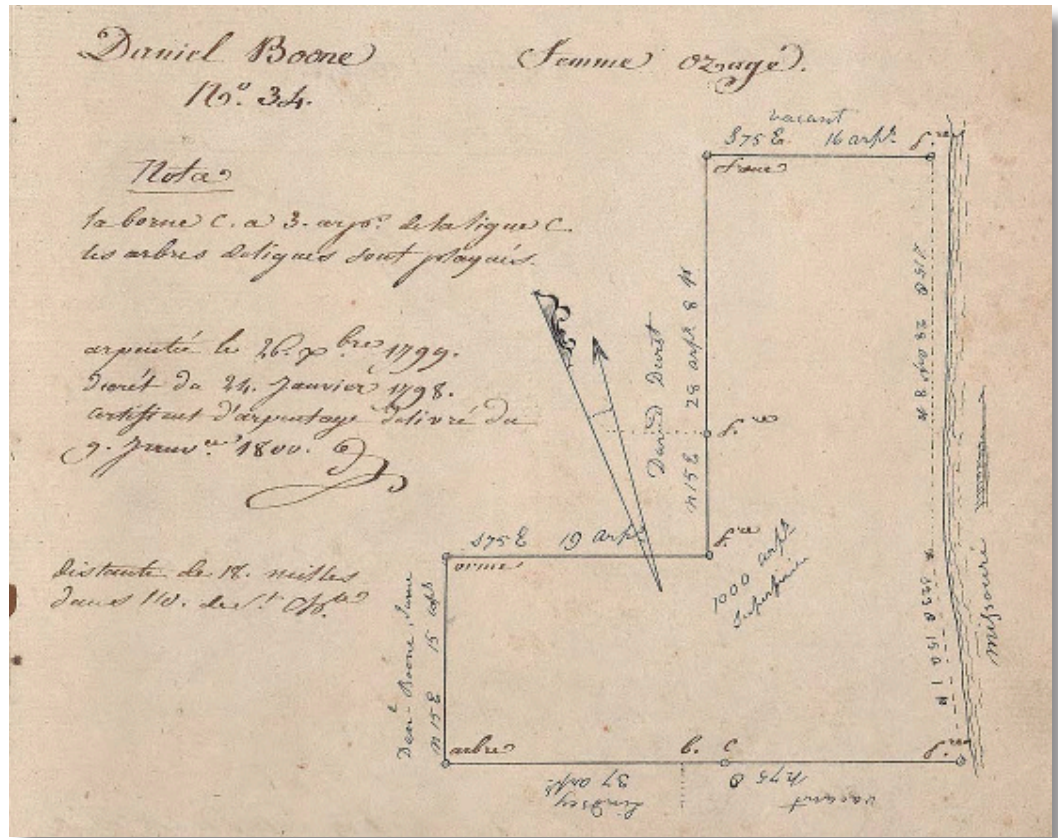 Daniel Boone
Femme ozage.
No. 34.
Nota
la borne C. a 3. arps. de la ligne C.
les arbres de lignes sont plaqués.
arpenté le 26. xbre 1799.
décrét du 24. Janvier 1798.
certificat d'arpentage délivré du
9. Janv.er 1800.
distante de 18. milles
dans l'O. de St. Ch.les
vacant
S75E. 16 arpts.
f.re
frene
David Durst
n15E 28 arpts 8 p
f.re
S75E 19 arpts
f.re
orme
1000 arpts
Superficie
Danl. Boone, June
n15E 15 arpts
arbre
b. c
f.re
Lindsey
37 arpts
n75O
vacant
S15O 28 arpts 8 p
Missouri